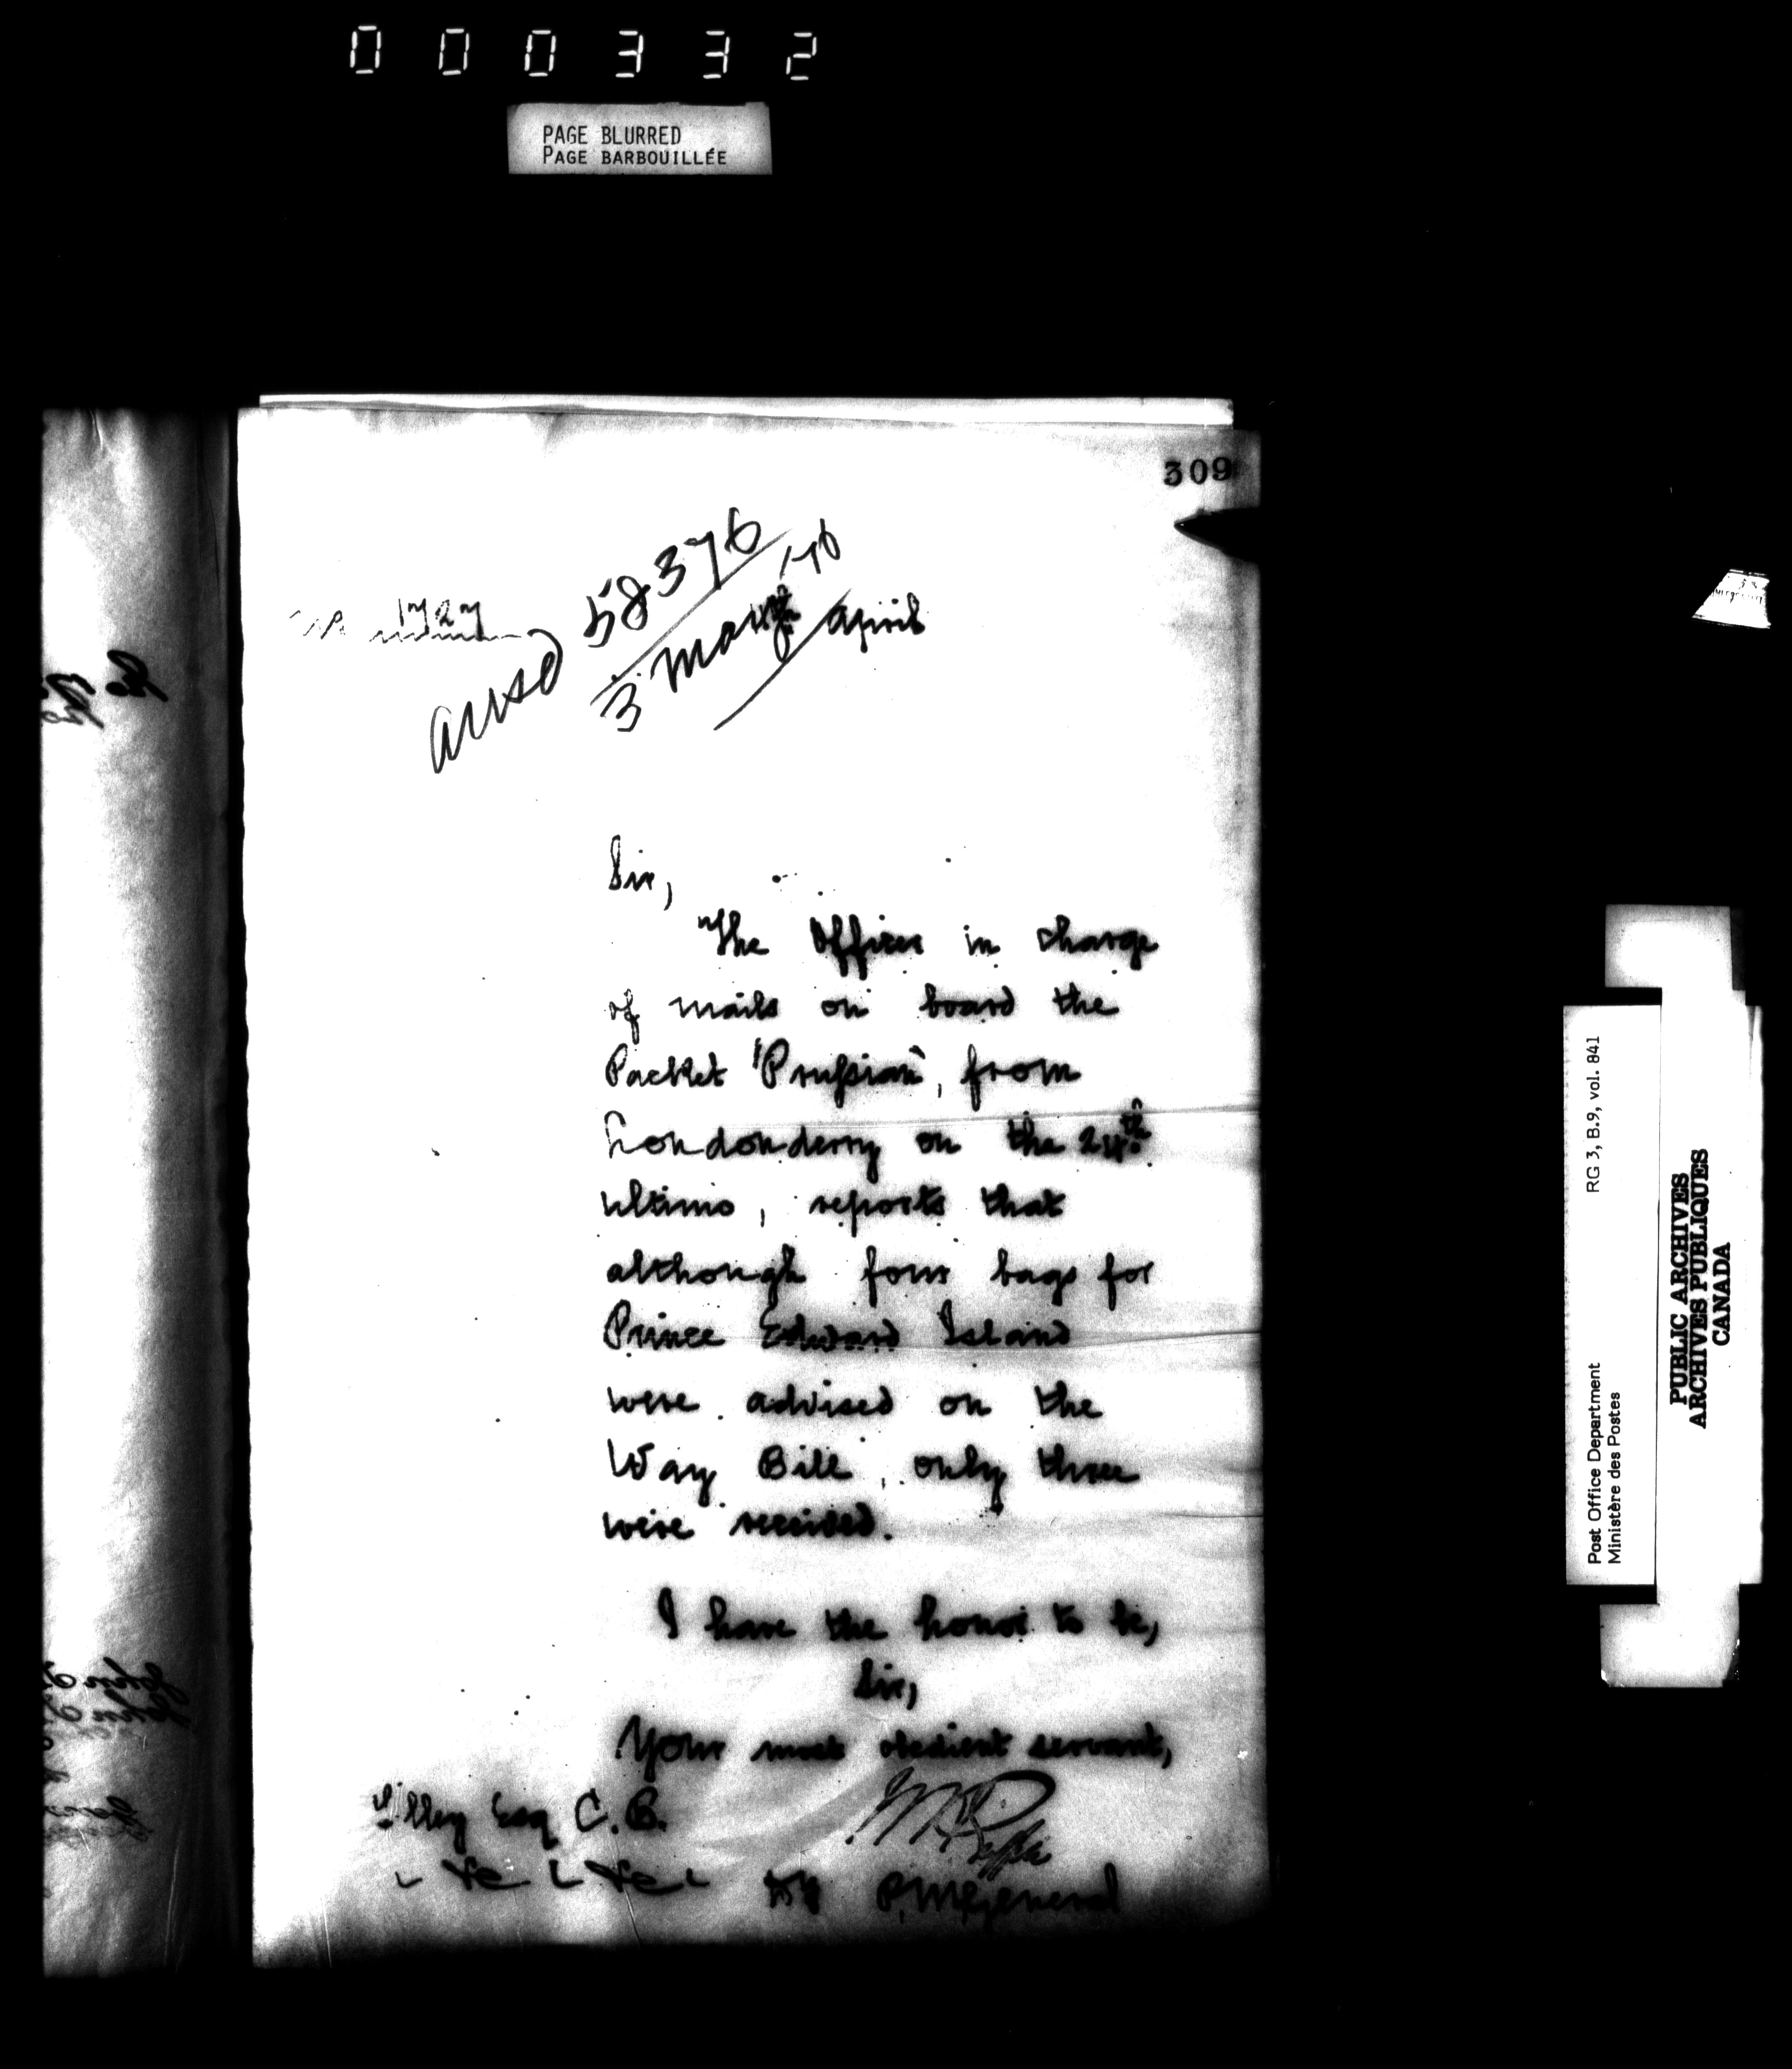 000332
PAGE BLURRED
PAGE BARBOUILLÉE
309
1727
answd 58376
3 May /70
April
Sir,
The Officer in charge
of mails on board the
Packet "Prussian", from
Londonderry on the 24th
ultimo, reports that
although four bags for
Prince Edward Island
were advised on the
Way Bill, only three
were received.
I have the honor to be,
Sir,
Your most obedient servant,
Tilley Esq C.B.
&c &c
P.M. General
RG 3, B.9, vol. 841
Post Office Department
Ministère des Postes
PUBLIC ARCHIVES
ARCHIVES PUBLIQUES
CANADA